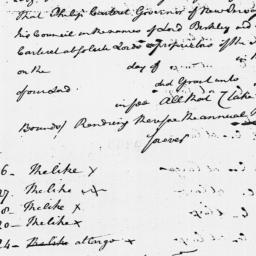 That Philip Carteret Governor of New Jersey
his Council in the names of Lord Berkley and
Carteret absolute Lords Proprietors of the
on the day of
of our Lord did Grant unto
in fee All that (take
Bounds) Rendring Therefore the annual
forever
6 - The like X
27. The like X
8 - The like X
20 - The like X
24 - The like at large X